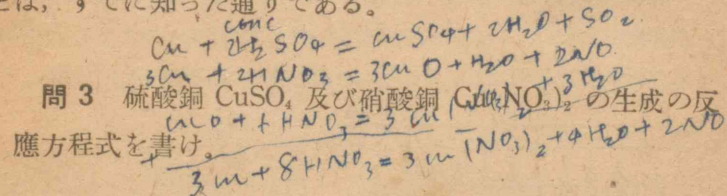 は, すでに知った通りである。
conc
Cu + 2H₂SO₄ = CuSO₄ + 2H₂O + SO₂
3Cu + 2HNO₃ = 3CuO + H₂O + 2NO
問 3 硫酸銅 CuSO₄ 及び硝酸銅 Cu(NO₃)₂ の生成の反
+ 3H₂O
應方程式を書け。
3Cu + 8HNO₃ = 3Cu(NO₃)₂ + 4H₂O + 2NO